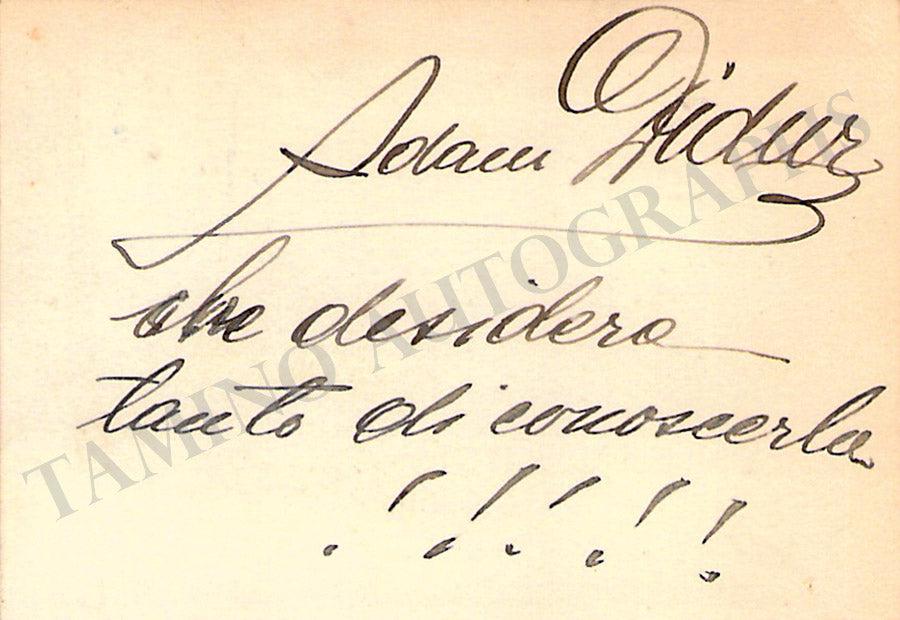 Adam Didur
che desidera
tanto di conoscerla
! ! ! ! !
TAMINO AUTOGRAPHS